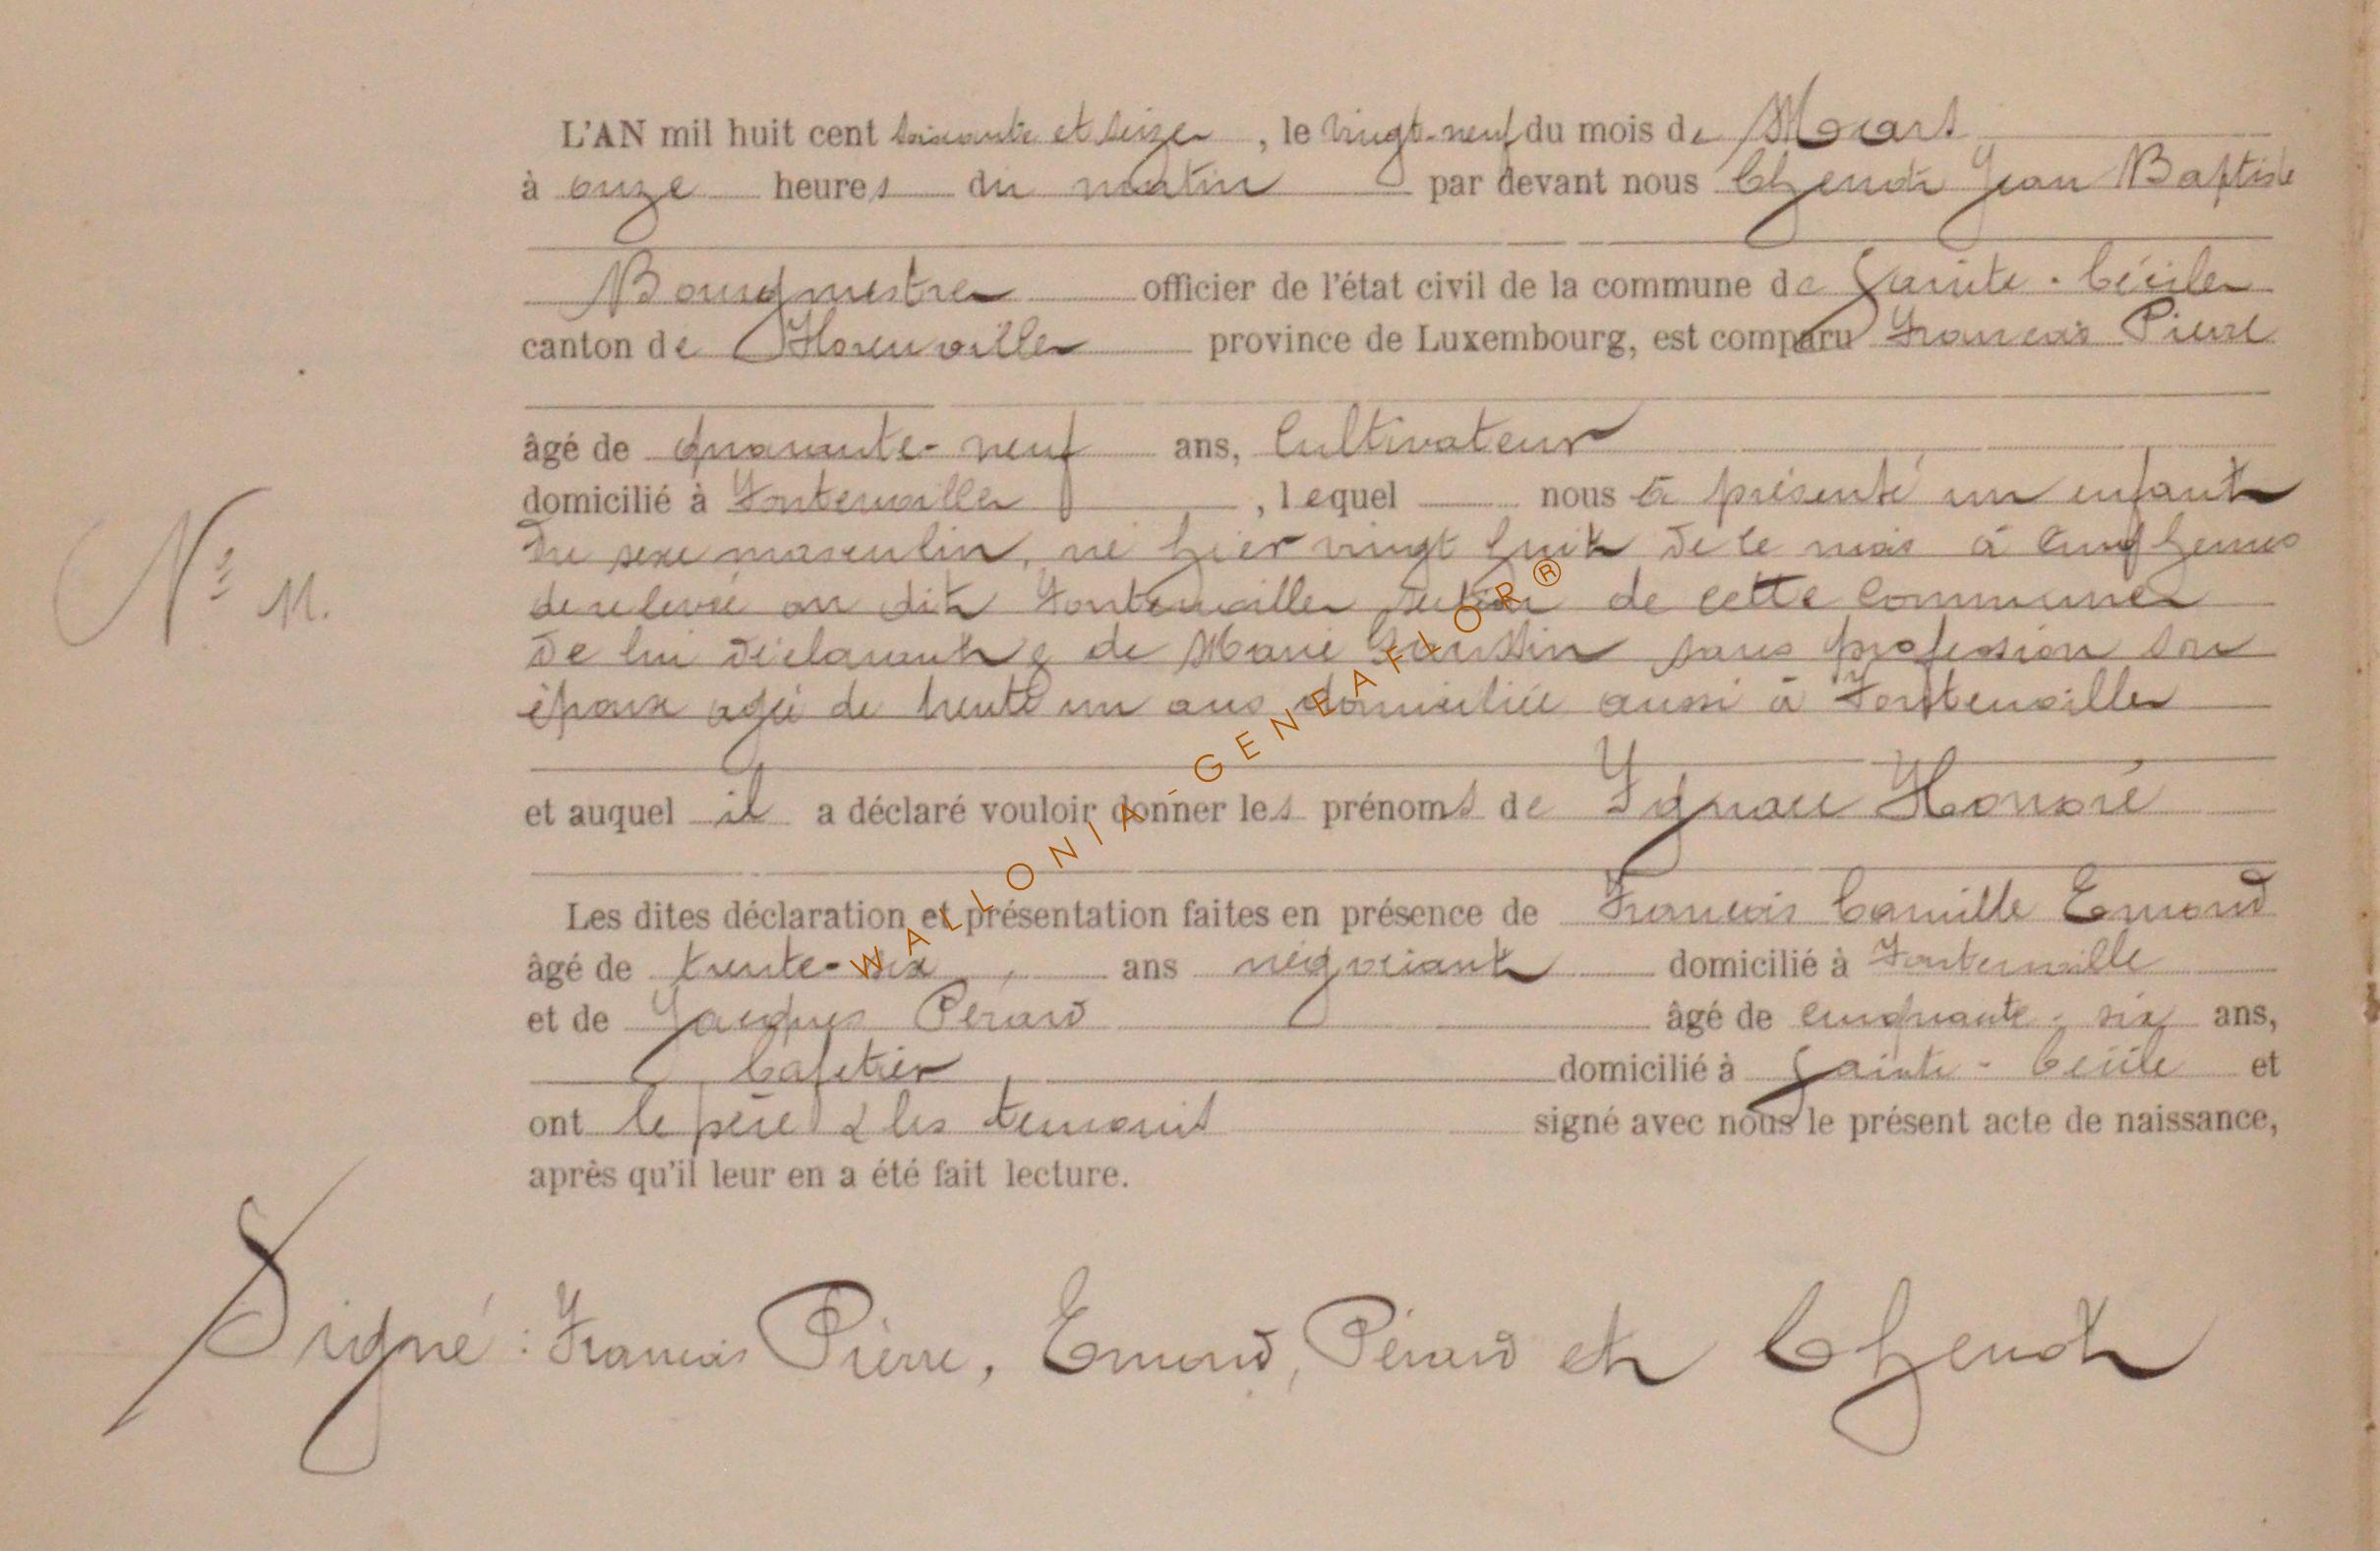 L'AN mil huit cent soixante et seize, le vingt-neuf du mois de Mars
à onze heures du matin par devant nous Chenot Jean Baptiste
Bourgmestre officier de l'état civil de la commune de Sainte-Cécile
canton de Florenville province de Luxembourg, est comparu François Pierre
âgé de quarante-neuf ans, Cultivateur
domicilié à Fontenoille, lequel nous a présenté un enfant
N° 11.
du sexe masculin, né hier vingt huit de ce mois à cinq heures
de relevée au dit Fontenoille section de cette commune
de lui déclarant & de Marie sans profession son
épouse agée de trente un ans domiciliée aussi à Fontenoille
et auquel il a déclaré vouloir donner les prénoms de Ignace Honoré
Les dites déclaration et présentation faites en présence de François Camille Emond
âgé de trente-six ans négociant domicilié à Fontenoille
et de Jacques Pérard âgé de cinquante-six ans,
Cafetier domicilié à Sainte-Cécile et
ont le père & les temoins signé avec nous le présent acte de naissance,
après qu'il leur en a été fait lecture.
Signé : François Pierre, Emond, Pérard et Chenot
WALLONIA-GENEAFLOR®